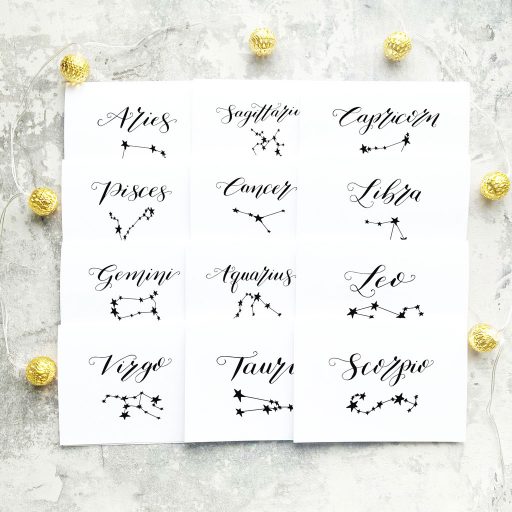 Aries
Sagittariu
Capricorn
Pisces
Cancer
Libra
Gemini
Aquarius
Leo
Virgo
Tauru
Scorpio